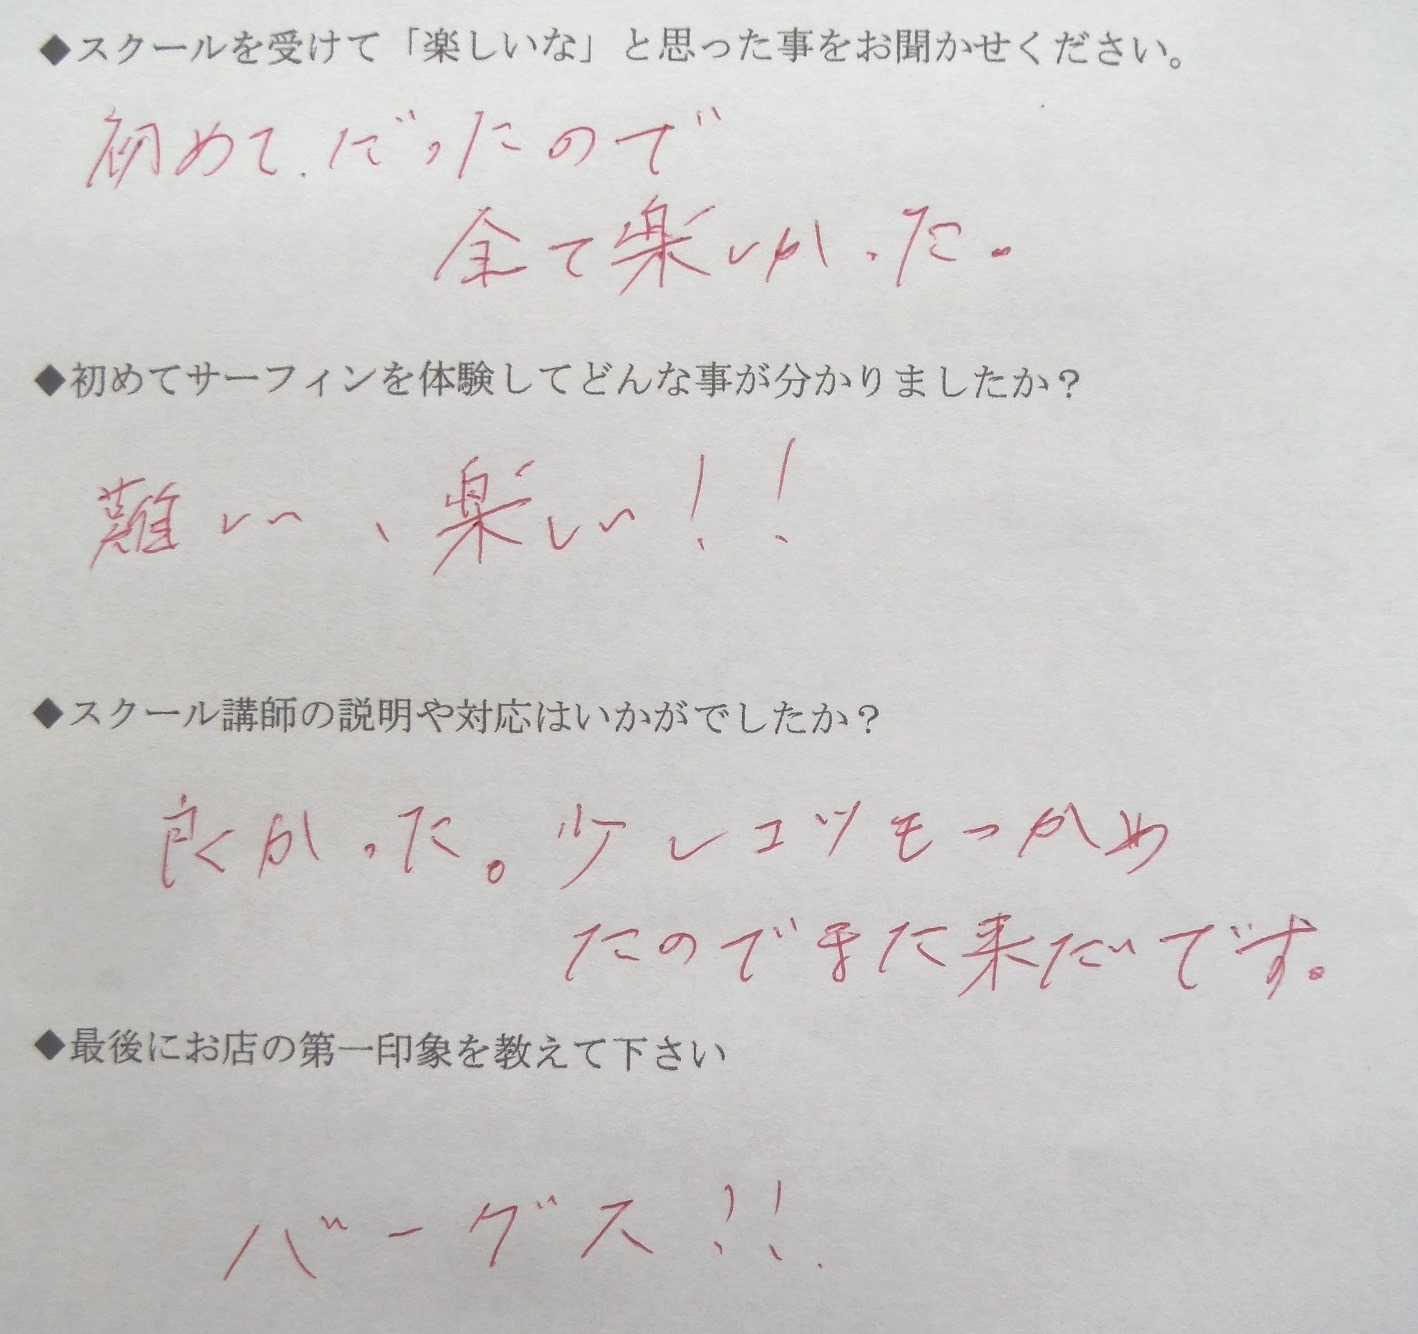 ◆スクールを受けて「楽しいな」と思った事をお聞かせください。
初めてだったので
全て楽しかった。
◆初めてサーフィンを体験してどんな事が分かりましたか？
難しい、楽しい！！
◆スクール講師の説明や対応はいかがでしたか？
良くかった。少しコツもつかめ
たのでまた来だいです。
◆最後にお店の第一印象を教えて下さい
バーグス！！